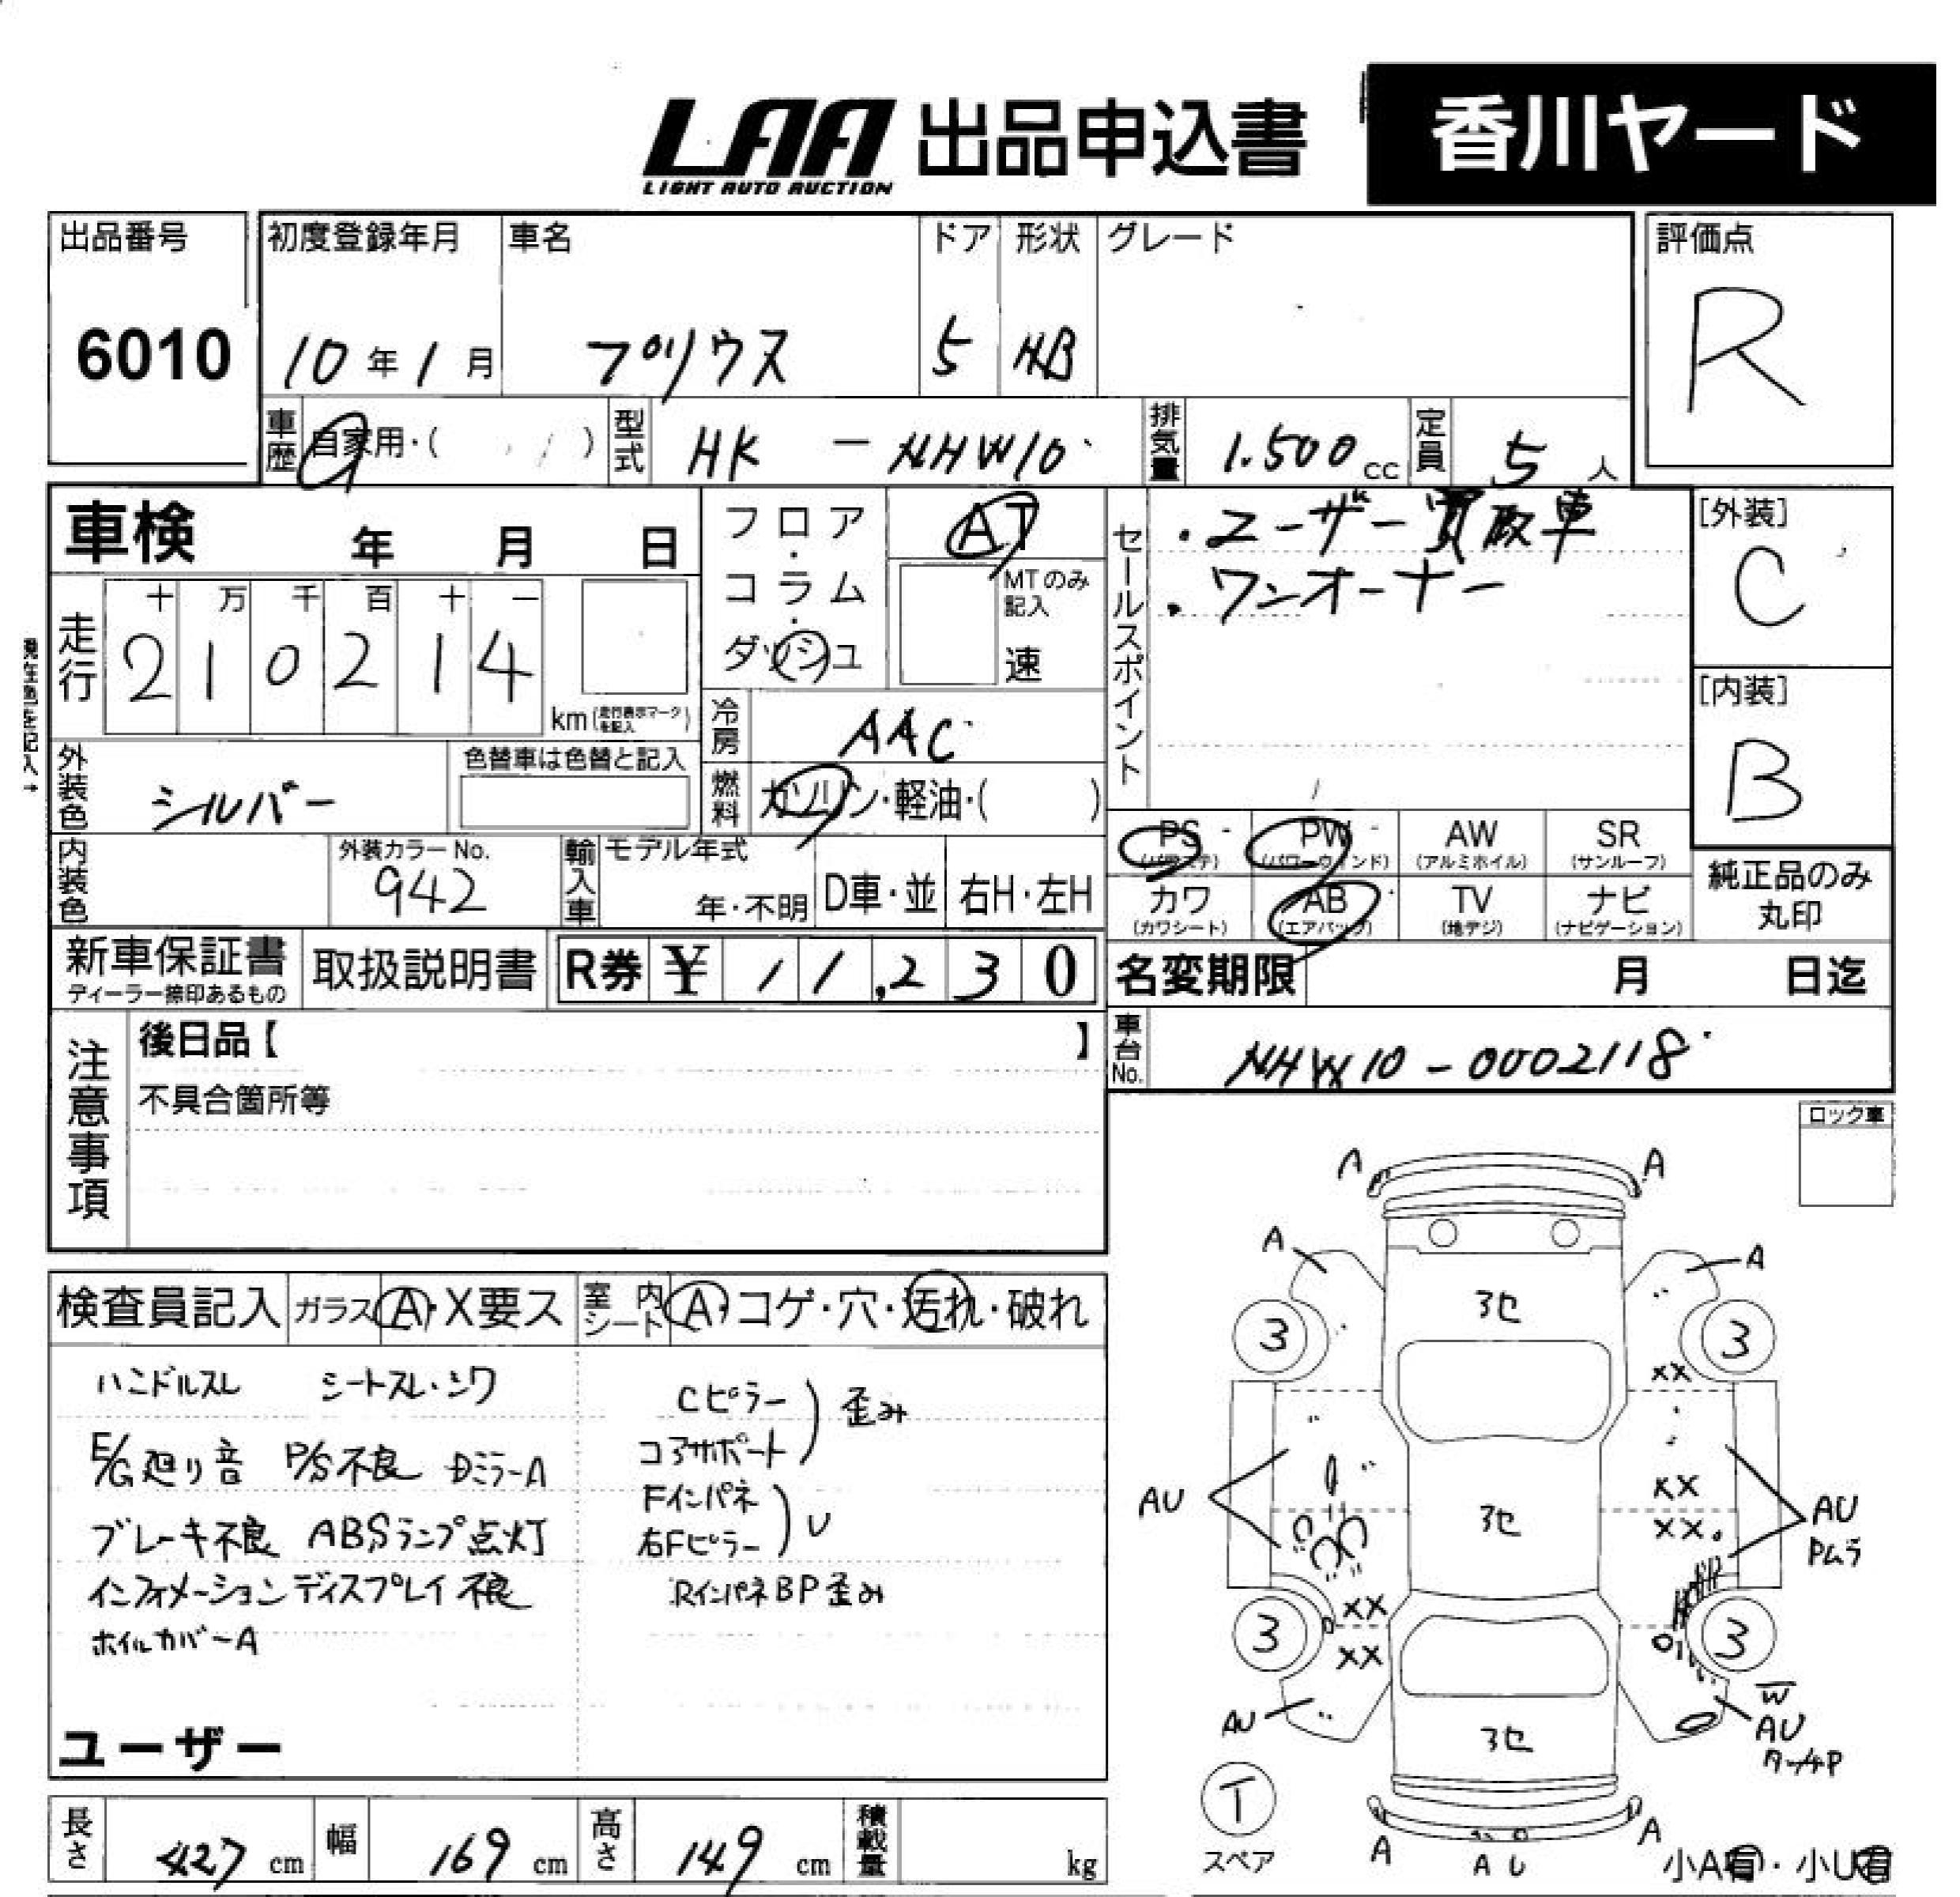 LAA 出品申込書 香川ヤード
LIGHT AUTO AUCTION
出品番号 初度登録年月 車名 ドア 形状 グレード 評価点
6010 10年1月 プリウス 5 HB R
車歴 自家用・( ) 型式 HK - NHW10 排気量 1.500cc 定員 5人
車検 年 月 日
フロア・コラム・ダッシュ
AT
MTのみ記入
速
セールスポイント
・ユーザー買取車
・ワンオーナー
[外装]
C
[内装]
B
走行 十 万 千 百 十 一
2 1 0 2 1 4 km(走行表示マークを記入)
現在色を記入→
冷房 AAC
外装色 シルバー 色替車は色替と記入
燃料 ガソリン・軽油・( )
PS (パワステ) PW (パワーウィンド) AW (アルミホイル) SR (サンルーフ)
カワ (カワシート) AB (エアバッグ) TV (地デジ) ナビ (ナビゲーション)
純正品のみ丸印
内装色 外装カラーNo. 942 輸入車 モデル年式 年・不明 D車・並 右H・左H
新車保証書 ディーラー捺印あるもの 取扱説明書 R券 ¥ 11,230
名変期限 月 日迄
車台No. NHW10-0002118
注意事項
後日品【 】
不具合箇所等
ロック車
検査員記入 ガラス A・X要ス 室内シート A・コゲ・穴・汚れ・破れ
ハンドルスレ シートスレ・シワ
E/G廻り音 P/S不良 Dミラー A
ブレーキ不良 ABSランプ点灯
インフォメーションディスプレイ不良
ホイルカバーA
Cピラー
コアサポート ) 歪み
Fインパネ
右Fピラー ) U
Rインパネ BP 歪み
ユーザー
A A
A A
3 3
XX
AU XX AU
XX Pムラ
XX
XX
3 3
AU W
AU
タッチP
T
スペア
A A
A U
小A有・小U有
長さ 427 cm 幅 169 cm 高さ 149 cm 積載量 kg